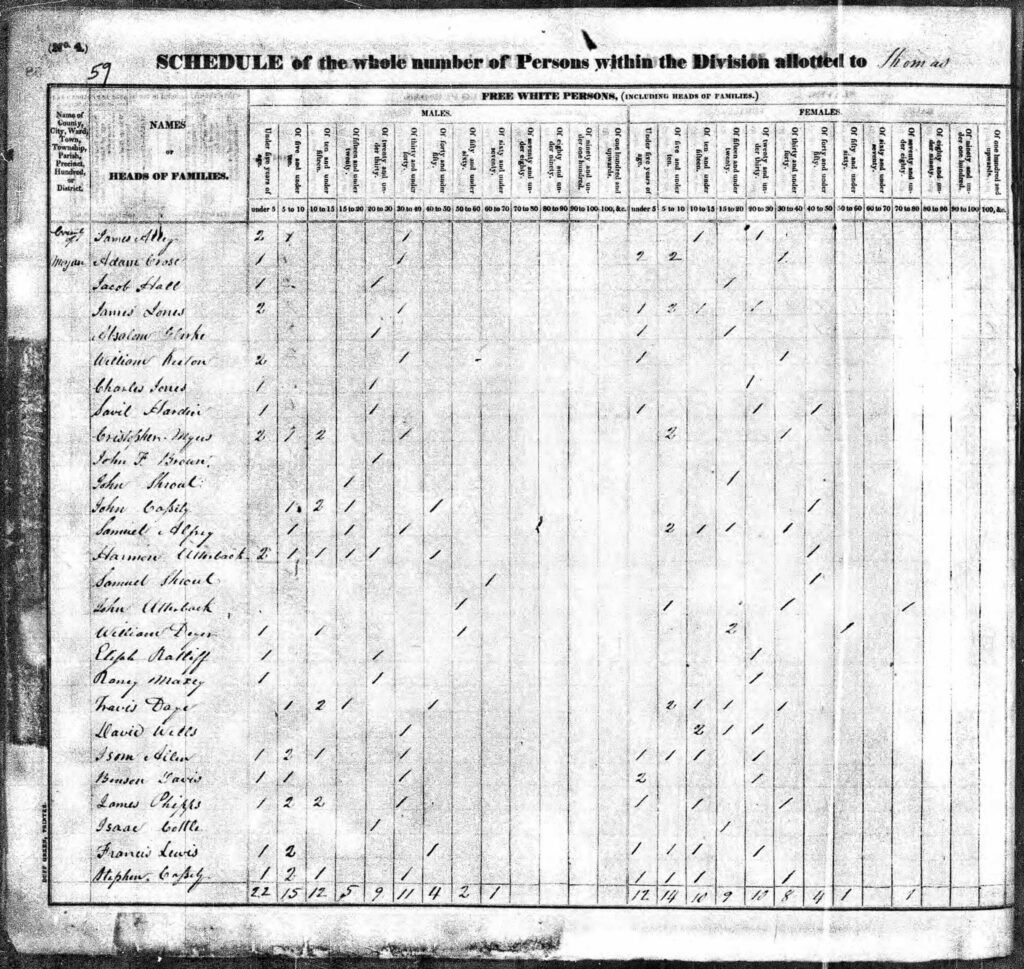 (No. 4.)
59
SCHEDULE of the whole number of Persons within the Division allotted to Thomas
FREE WHITE PERSONS, (INCLUDING HEADS OF FAMILIES.)
MALES. FEMALES.
Name of County, City, Ward, Town, Township, Parish, Precinct, Hundred, or District.
NAMES
OF
HEADS OF FAMILIES.
Under five years of age. Of five and under ten. Of ten and under fifteen. Of fifteen and under twenty. Of twenty and under thirty. Of thirty and under forty. Of forty and under fifty. Of fifty and under sixty. Of sixty and under seventy. Of seventy and under eighty. Of eighty and under ninety. Of ninety and under one hundred. Of one hundred and upwards. Under five years of age. Of five and under ten. Of ten and under fifteen. Of fifteen and under twenty. Of twenty and under thirty. Of thirty and under forty. Of forty and under fifty. Of fifty and under sixty. Of sixty and under seventy. Of seventy and under eighty. Of eighty and under ninety. Of ninety and under one hundred. Of one hundred and upwards.
under 5 5 to 10 10 to 15 15 to 20 20 to 30 30 to 40 40 to 50 50 to 60 60 to 70 70 to 80 80 to 90 90 to 100 100, &c. under 5 5 to 10 10 to 15 15 to 20 20 to 30 30 to 40 40 to 50 50 to 60 60 to 70 70 to 80 80 to 90 90 to 100 100, &c.
County of James Alley 2 1 1 1 1
Morgan Adam Crose 1 1 2 2 1
Jacob Hall 1 1 1
James Jones 2 1 1 2 1 1
Absalom 1 1 1
William 2 1 1 1
Charles Jones 1 1 1
Savil Hardin 1 1 1 1 1
Cristopher Myers 2 1 2 1 2 1
John F Brown 1
John Shroul 1 1
John Cassity 1 2 1 1 1
Samuel Alfrey 1 1 1 2 1 1 1
Harmon Utterback 2 1 1 1 1 1 1
Samuel Shroul 1 1
John Utterback 1 1 1 1
William Dyer 1 1 1 2 1
Elijah Ratliff 1 1 1
Raney Maxey 1 1 1
Travis Daye 1 2 1 1 2 1 1 1
David Wells 1 2 1 1
Isom Allen 1 2 1 1 1 1 1 1
Benson Davis 1 1 1 2 1
James Phipps 1 2 2 1 1 1 1
Isaac Cottle 1 1
Francis Lewis 1 2 1 1 1 1 1
Stephen Cassity 1 2 1 1 1 1 1 1
22 15 12 5 9 11 4 2 1 12 14 10 9 10 8 4 1 1
DUFF GREEN, PRINTER.